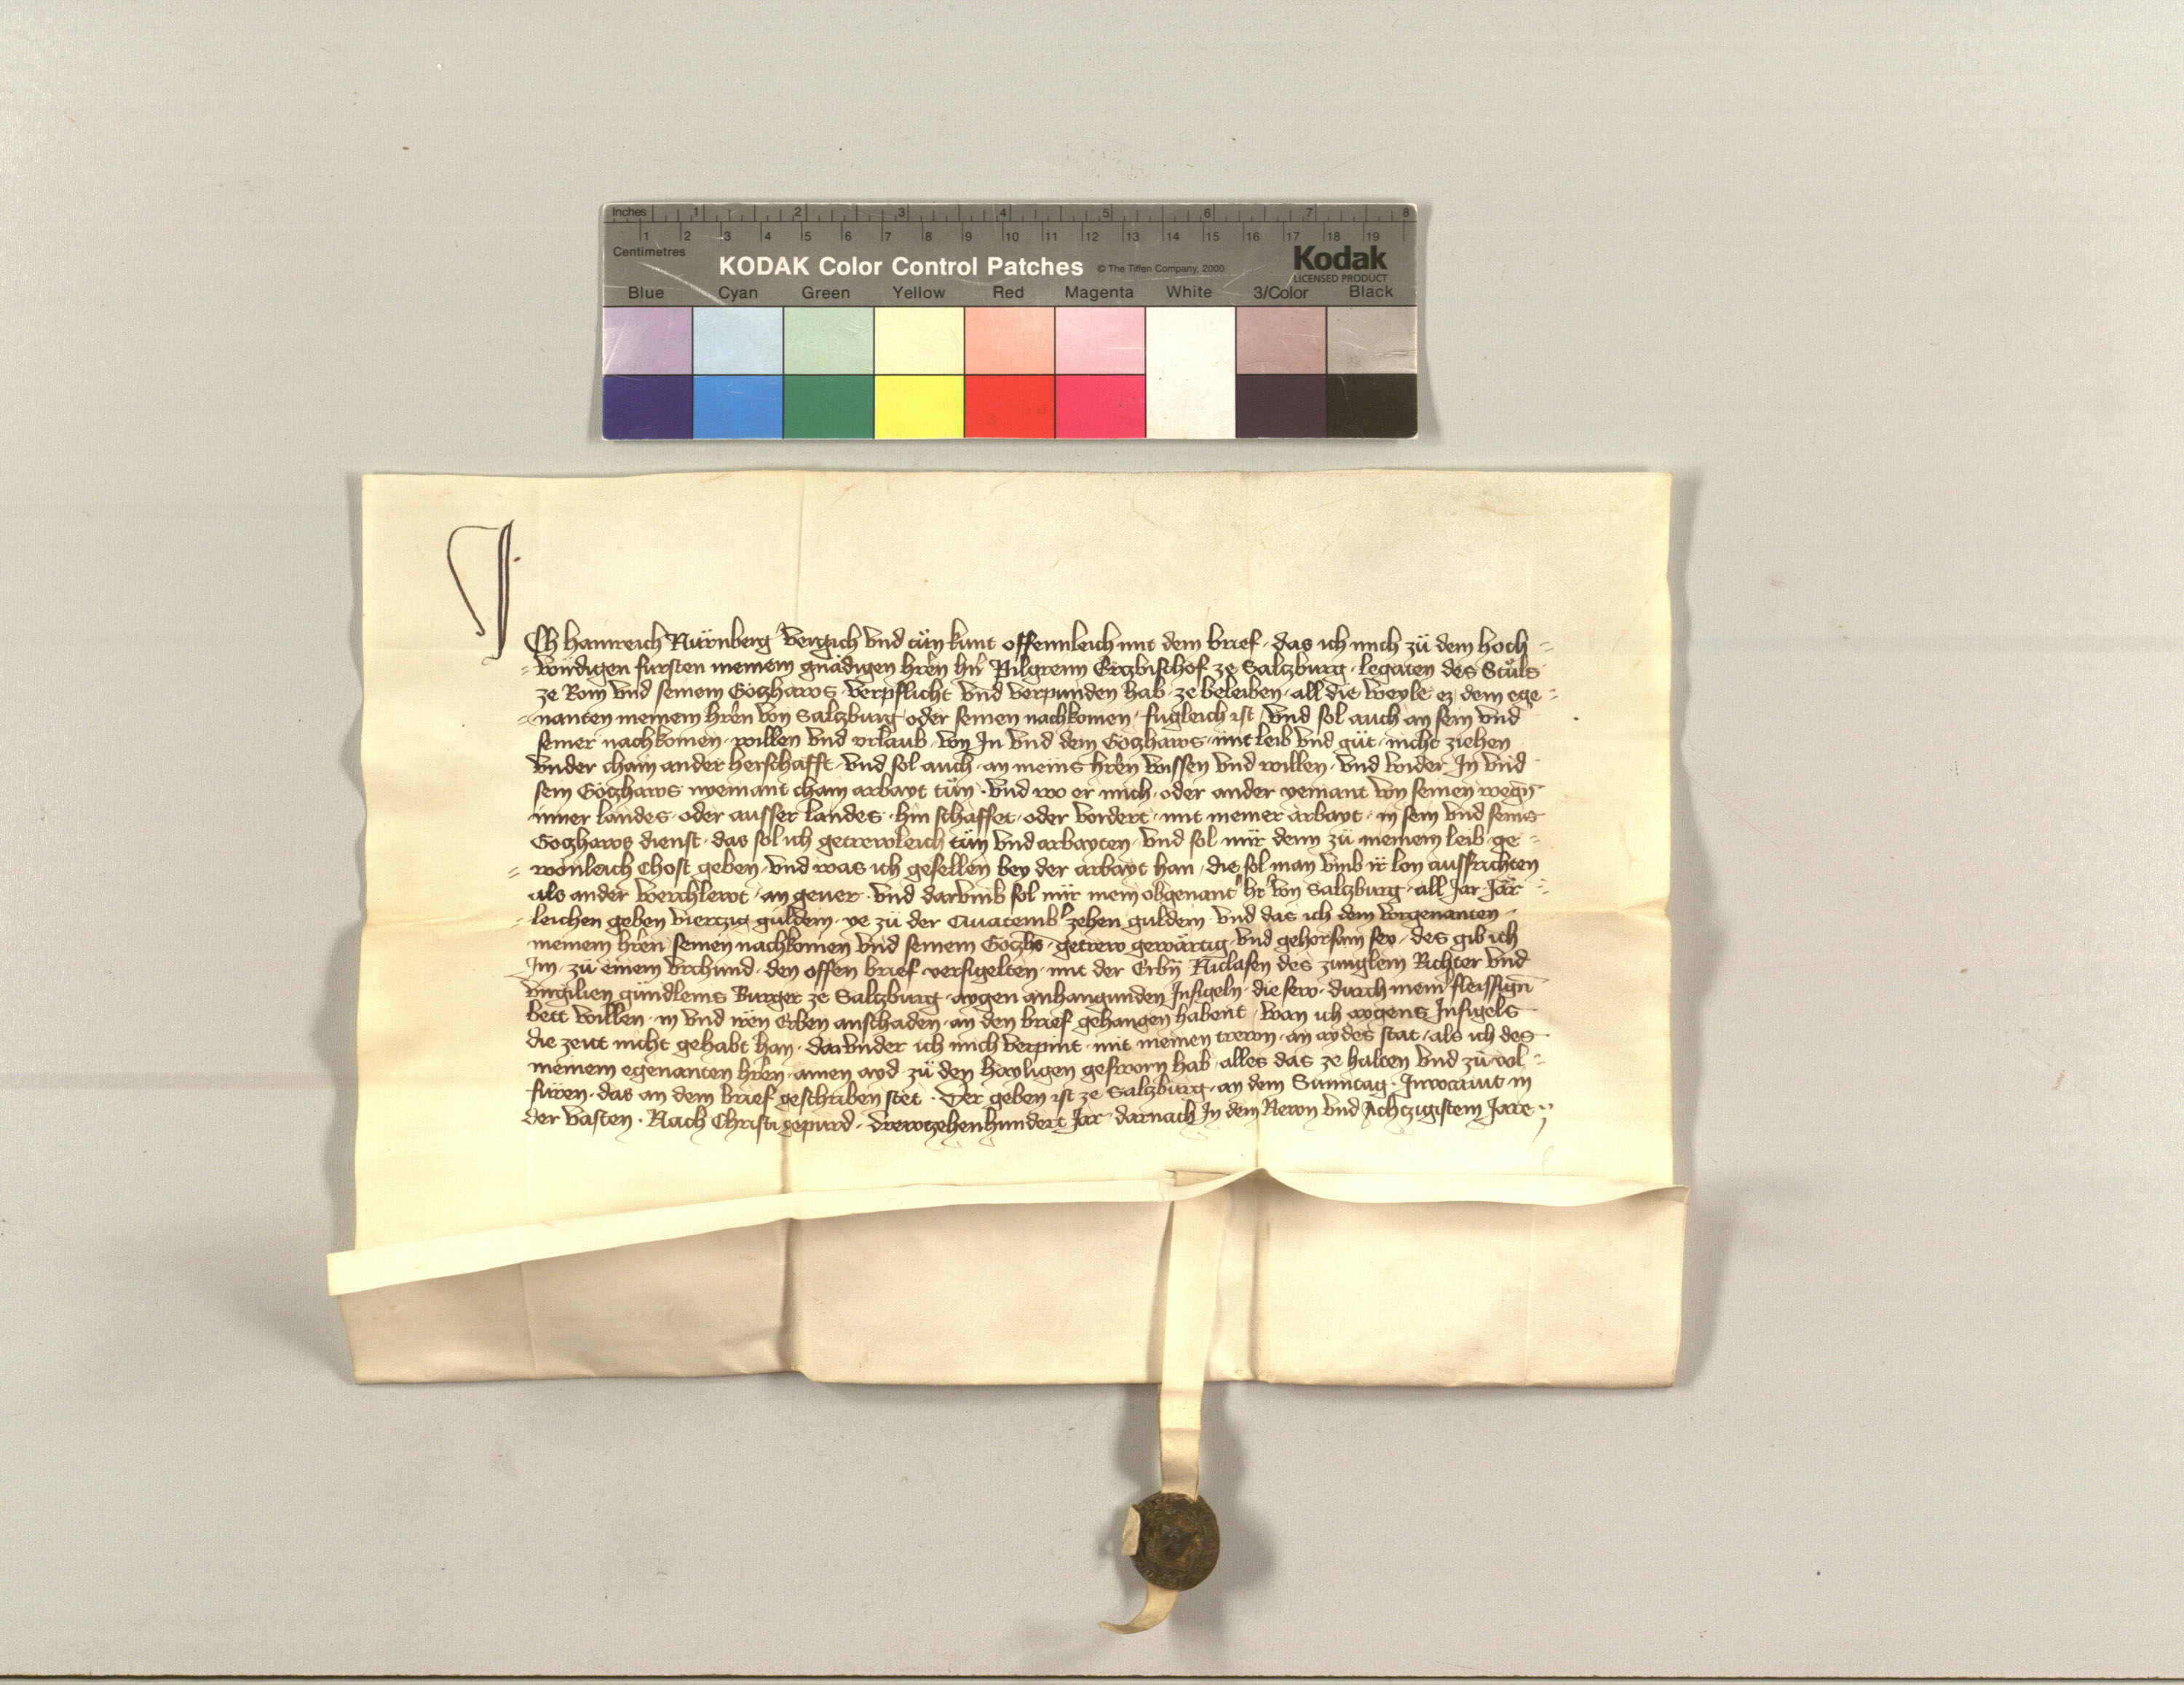 Inches 1 2 3 4 5 6 7 8
1 2 3 4 5 6 7 8 9 10 11 12 13 14 15 16 17 18 19
Centimetres
KODAK Color Control Patches © The Tiffen Company, 2000 Kodak
LICENSED PRODUCT
Blue Cyan Green Yellow Red Magenta White 3/Color Black
Ich Hainreich Nürnberg vergich vnd tün kunt offennleich mit dem brief · das ich mich zü dem hoch =
= wirdigen fürsten meinem gnädigen hren hn Pilgreim Erczbischof ze Salzburg · legaten des Stüls
ze Rom vnd seinem Goczhaws · verpflicht vnd verpunden hab · ze beleiben · all die weyle ez dem ege =
= nanten meinem hren von Salzburg oder seinen nachkomen · fugleich ist · vnd sol auch an sein vnd
seiner nachkomen · willen vnd vrlaub · von In vnd dem Goczhaws · mit leib vnd güt · nicht ziehen
vnder chain ander herschafft · vnd sol auch · an meins hren wissen vnd willen · vnd wider In vnd
sein Goczhaws nyemant chain arbayt tün · vnd wo er mich · oder ander yemant von seinen wegn
inner landes · oder ausser landes · hin schaffet · oder vordert · mit meiner arbayt · in sein vnd seins
Goczhaws dienst · das sol ich getrewleich tün vnd arbayten · vnd sol mir denn zü meinem leib · ge =
= wonleich chost geben · vnd was ich gesellen bey der arbayt han · die sol man vmb ir lon ausrichten
als ander werchlewt · an geuer · vnd darvmb sol mir mein obgenant hr von Salzburg · all Jar Jär =
= leichen geben vierczig guldein · ye zü der Quatemb zehen guldein vnd das ich dem vorgenanten
meinem hren seinen nachkomen vnd seinem Goczhs · getrew gewärtig vnd gehorsam sey · des gib ich
Im · zü einem vrchund · den offen brief versigelten · mit der Erbn Niclasen des zinglein Richter vnd
virgilien gündleins Burger ze Salzburg · aygen anhangunden Insigeln · die sew · durch mein fleissign
bett willen · in vnd iren Erben anschaden · an den brief gehangen habent · wan ich aygens Insigels
die zeit nicht gehabt han · darvnder ich mich verpint · mit meinen trewn · an aydes stat · als ich des
meinem egenanten hren · ainen ayd · zü den hayligen gesworn hab · alles das ze halten vnd zü vol =
füren · das an dem brief geschriben stet · Der geben ist ze Salzburg · an dem Sunntag · Inuocauit in
der vasten · Nach Christi gepurd · drewczehenhundert Jar · darnach In dem Newn vnd Achczigistem Jare